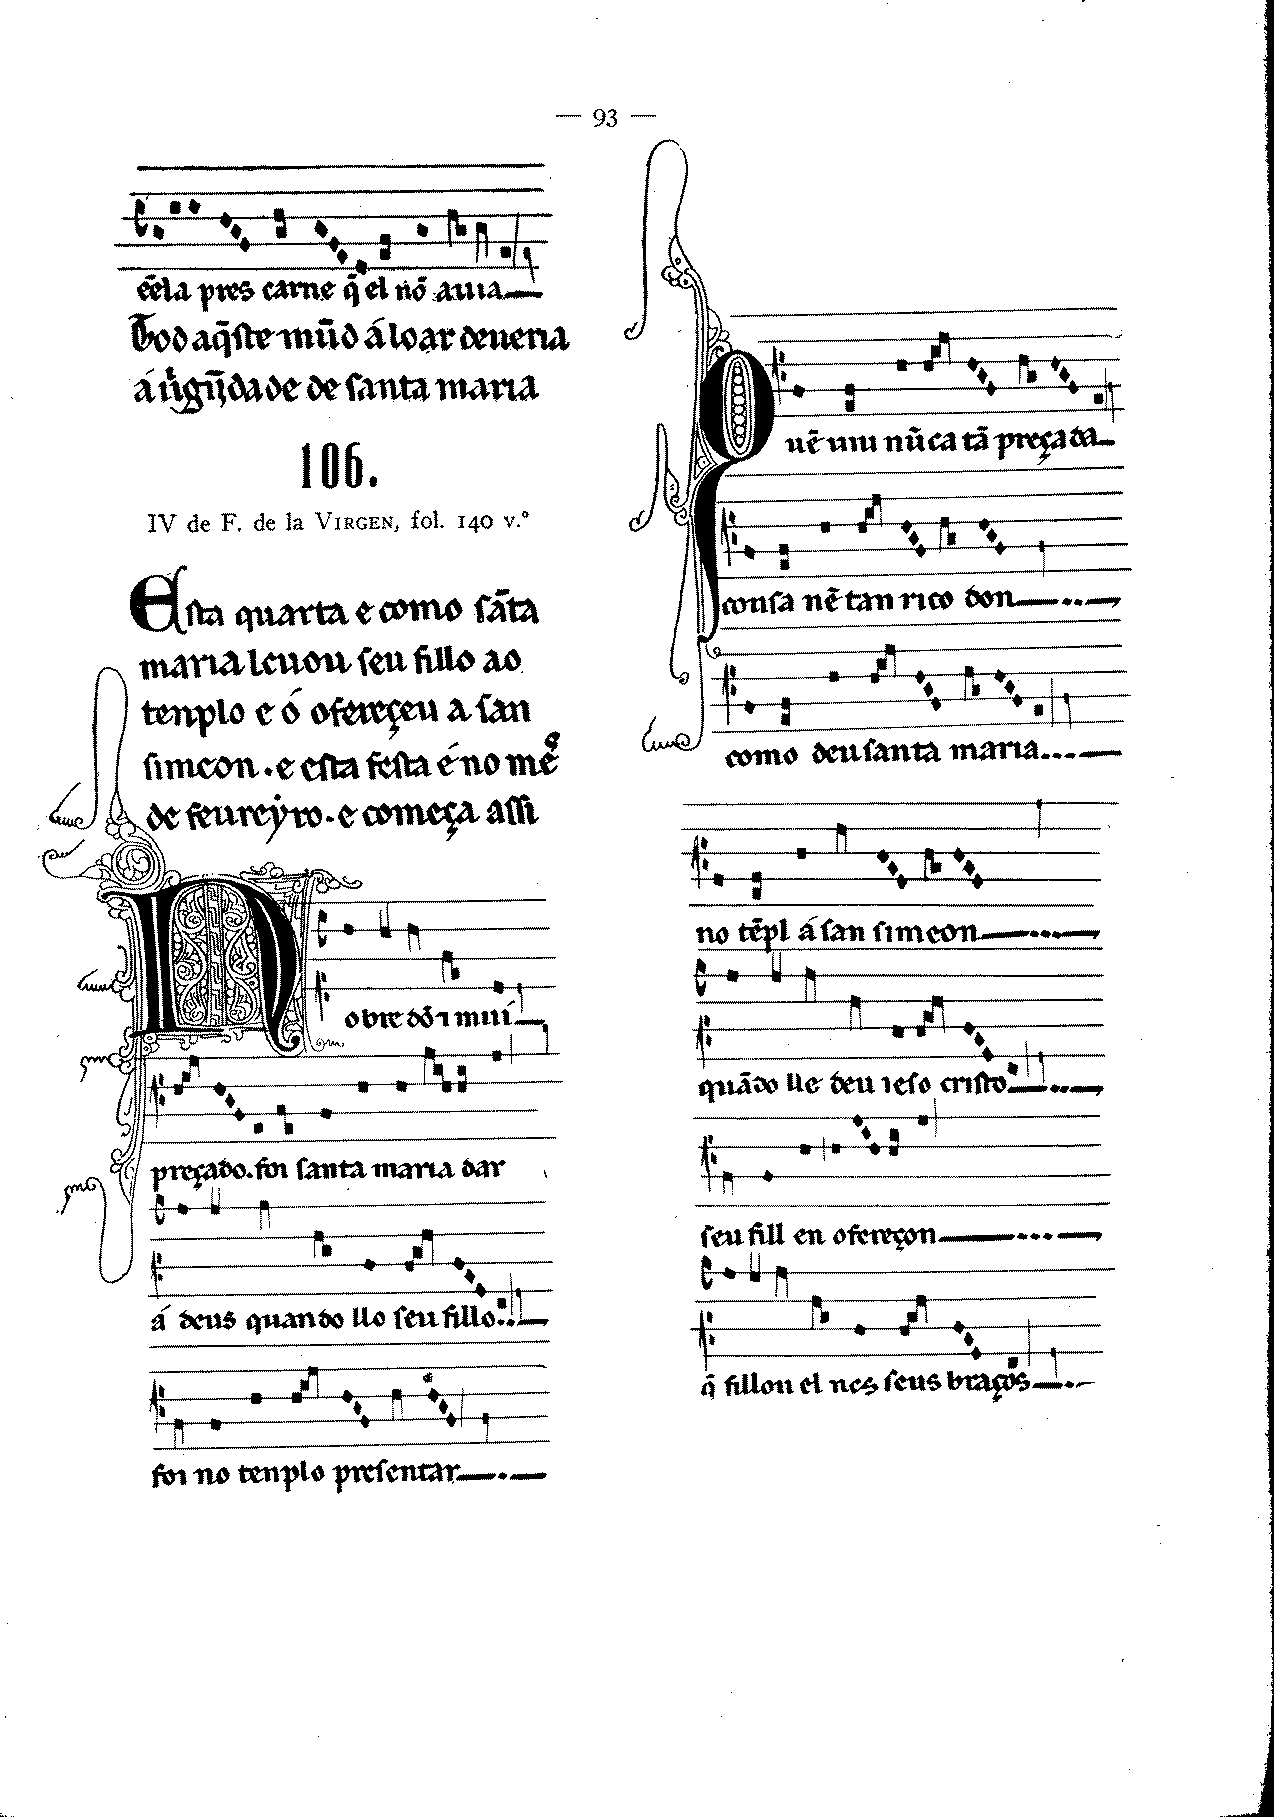 — 93 —
ēela pres carne q̄ el nō auia
Tod aq̄ste mūd á loar deueria
á uĩgĩjdade de santa maria
106.
IV de F. de la VIRGEN, fol. 140 v.º
Esta quarta e como sāta
maria leuou seu fillo ao
tenplo e ó ofereçeu a san
simeon. e esta festa é no mes
de feureyro. e começa assi
Nobre dō ⁊ mui
preçado. foi santa maria dar
á deus quando llo seu fillo
foi no tenplo presentar
Quē uiu nūca tā preçada
consa nē tan rico don
como deu santa maria
no tēpl á san simeon
quādo lle deu ieso cristo
seu fill en ofereçon
q̄ fillou el nos seus braços